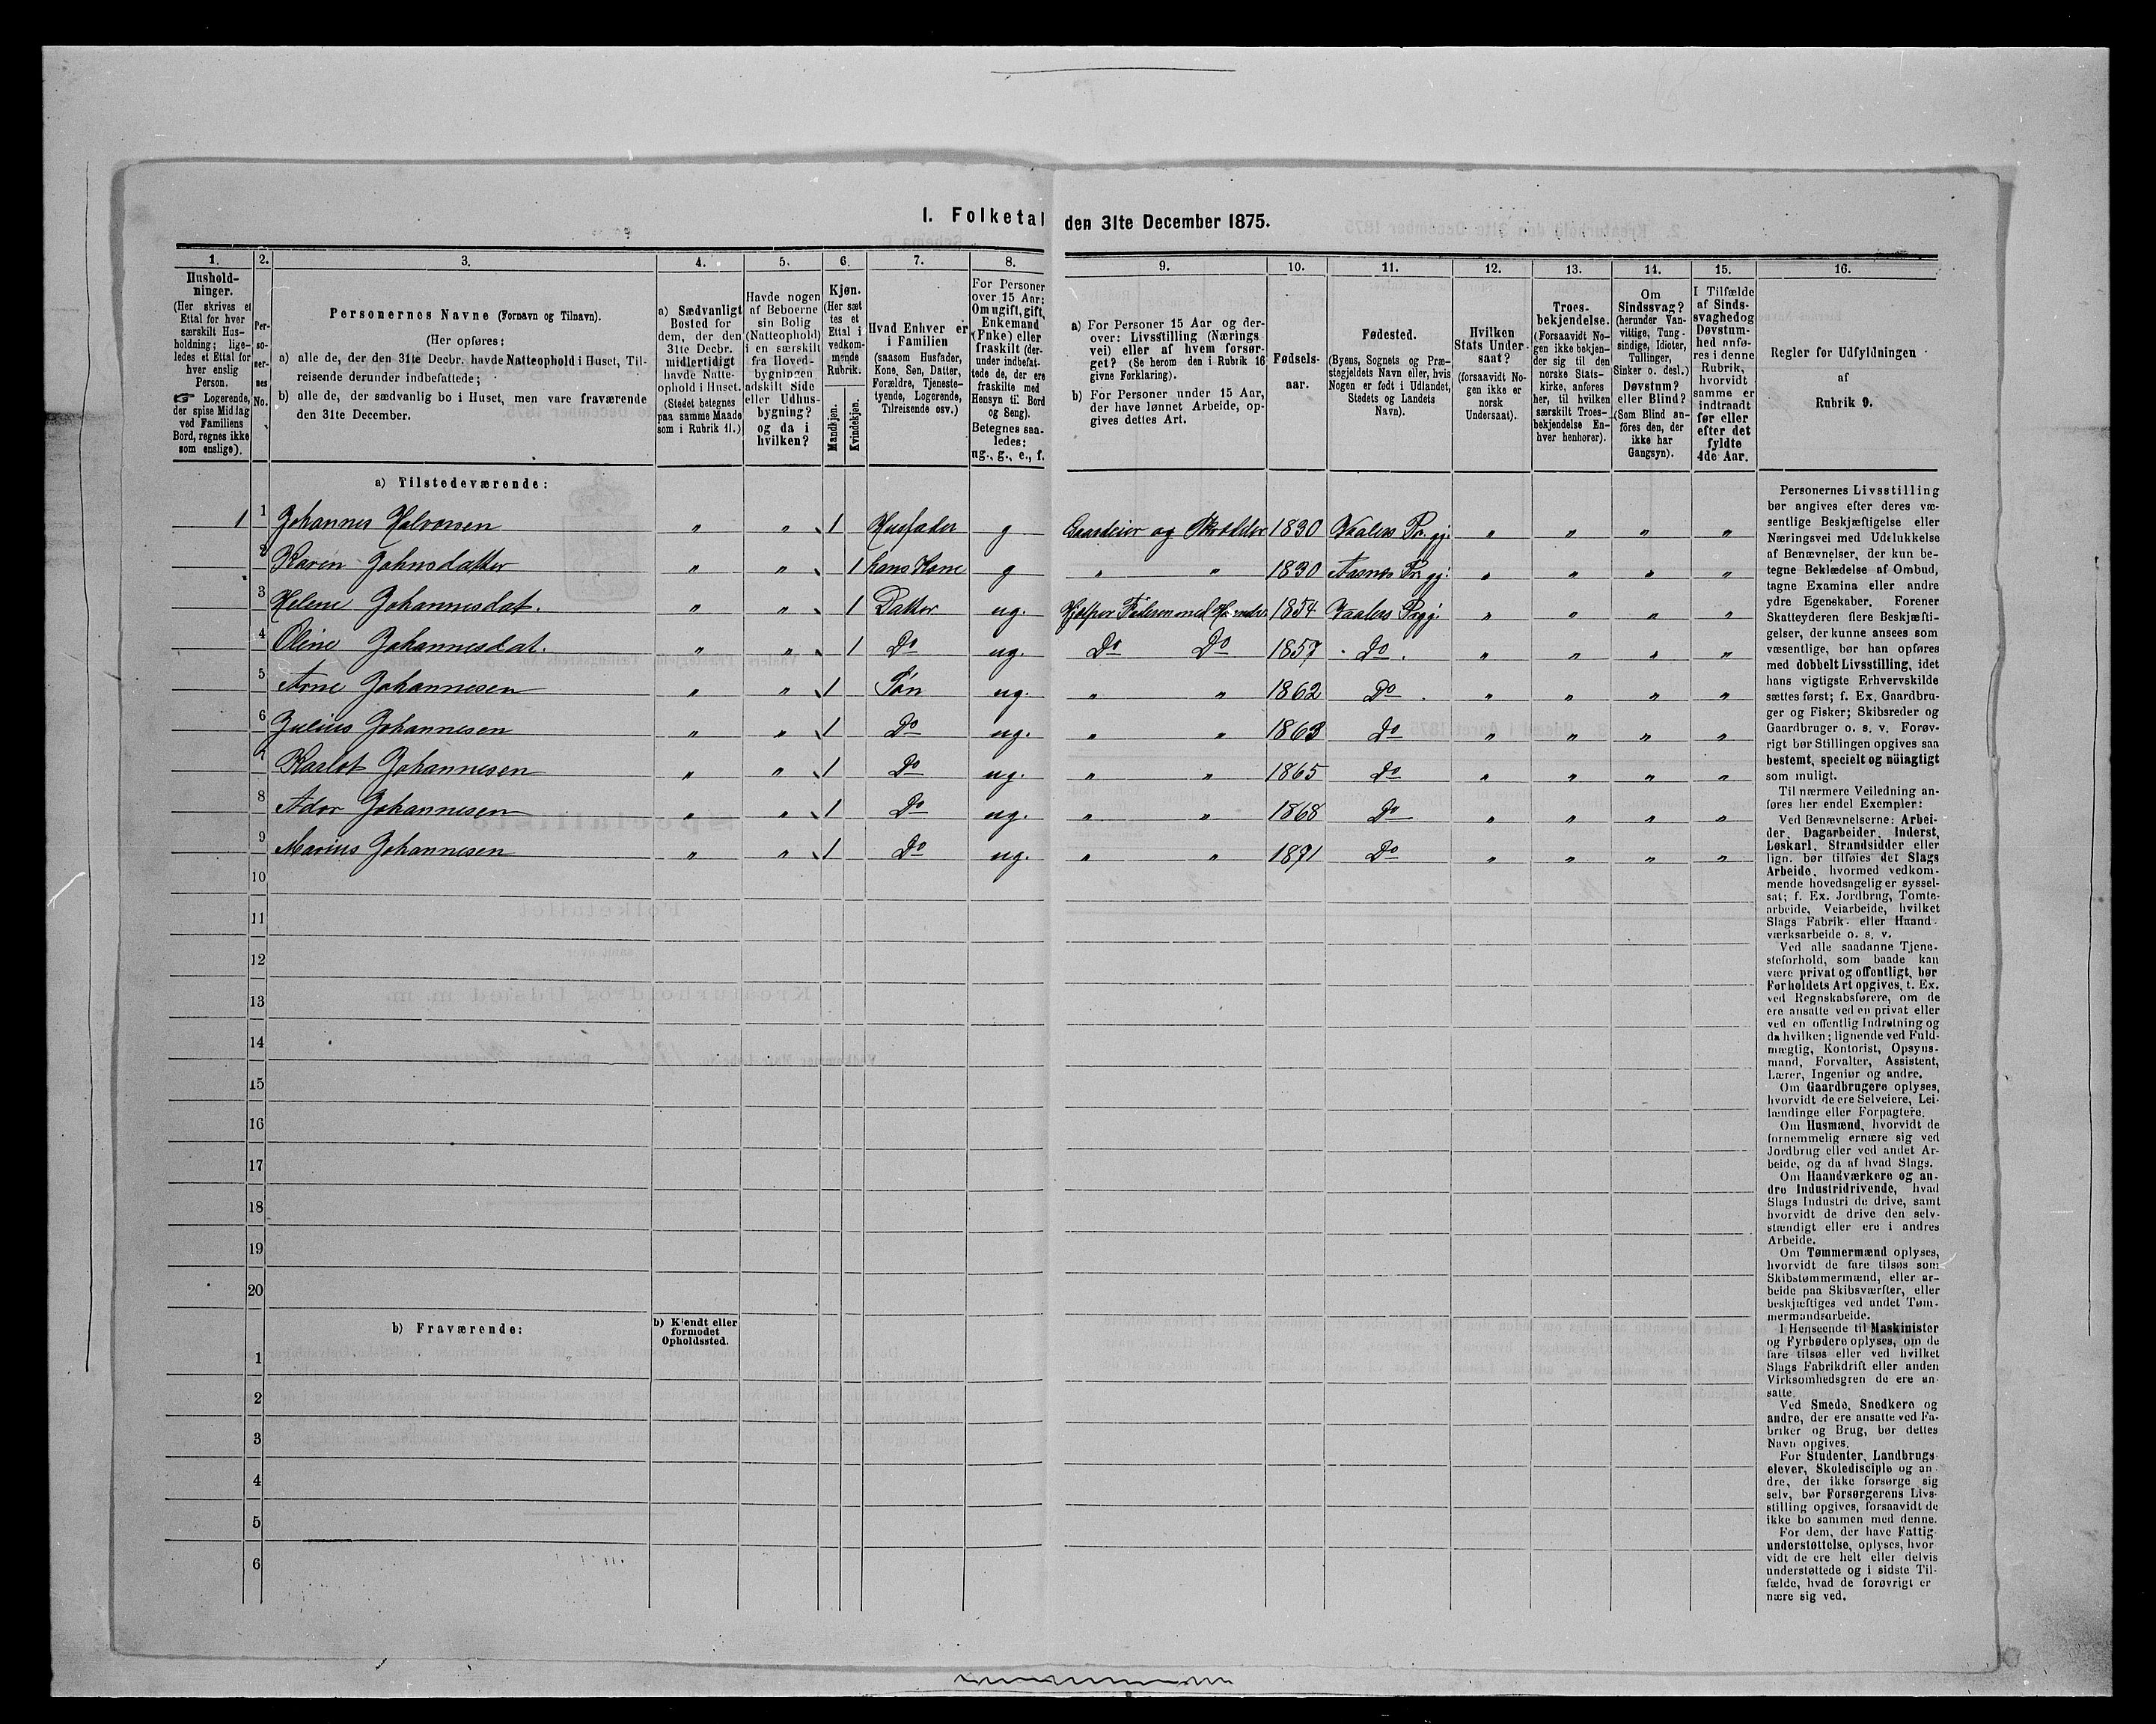 I. Folketal den 31te December 1875.
1.
Hushold-
ninger.
(Her skrives et
Ettal for hver
særskilt Hus-
holdning; lige-
ledes et Ettal for
hver enslig
Person.
☞ Logerende,
der spise Middag
ved Familiens
Bord, regnes ikke
som enslige).
2.
Per-
so-
ner-
nes
No.
3.
Personernes Navne (Fornavn og Tilnavn).
(Her opføres:
a) alle de, der den 31te Decbr. havde Natteophold i Huset, Til-
reisende derunder indbefattede;
b) alle de, der sædvanlig bo i Huset, men vare fraværende
den 31te December.
4.
a) Sædvanligt
Bosted for
dem, der den
31te Decbr.
midlertidigt
havde Natte-
ophold i Huset.
(Stedet betegnes
paa samme Maade
som i Rubrik 11.)
5.
Havde nogen
af Beboerne
sin Bolig
(Natteophold)
i en særskilt
fra Hoved-
bygningen
adskilt Side
eller Udhus-
bygning?
og da i
hvilken?
6.
Kjøn.
(Her sæt
tes et
Ettal i
vedkom-
mende
Rubrik.
Mandkjøn.
Kvindekjøn.
7.
Hvad Enhver er
i Familien
(saasom Husfader,
Kone, Søn, Datter,
Forældre, Tjeneste-
tyende, Logerende,
Tilreisende osv.)
8.
For Personer
over 15 Aar:
Om ugift, gift,
Enkemand
(Enke) eller
fraskilt (der-
under indbefat-
tede de, der ere
fraskilte med
Hensyn til Bord
og Seng).
Betegnes saa-
ledes:
ug., g., e., f.
9.
a) For Personer 15 Aar og der-
over: Livsstilling (Nærings
vei) eller af hvem forsør-
get? (Se herom den i Rubrik 16
givne Forklaring).
b) For Personer under 15 Aar,
der have lønnet Arbeide, op-
gives dettes Art.
10.
Fødsels-
aar.
11.
Fødested.
(Byens, Sognets og Præ-
stegjeldets Navn eller, hvis
Nogen er født i Udlandet,
Stedets og Landets
Navn).
12.
Hvilken
Stats Under
saat?
(forsaavidt No-
gen ikke er
norsk
Undersaat).
13.
Troes-
bekjendelse.
(Forsaavidt No-
gen ikke bekjen-
der sig til den
norske Stats-
kirke, anføres
her, til hvilken
særskilt Troes-
bekjendelse En-
hver henhører).
14.
Om
Sindssvag?
(herunder Van-
vittige, Tung-
sindige, Idioter,
Tullinger,
Sinker o. desl.)
Døvstum?
eller Blind?
(Som Blind an-
føres den, der
ikke har
Gangsyn).
15.
I Tilfælde
af Sinds-
svaghed og
Døvstum-
hed anfø-
res i denne
Rubrik,
hvorvidt
samme er
indtraadt
før eller
efter det
fyldte
4de Aar.
16.
Regler for Udfyldningen
af
Rubrik 9.
a) Tilstedeværende:
1 1 Johannes Halvorsen " " 1 Husfader g Gaardeier og Skrædder 1830 Vaalers Pr. gj. " " " "
2 Karen Johnsdatter " " 1 hans Kone g " " 1830 Aasnes Pr. gj. " " " "
3 Helene Johannesdat. " " 1 Datter ug. Hjelper Faderen med 1854 Vaalers Prgj. " " " "
4 Oline Johannesdat. " " 1 Do ug. Do Do 1857 Do " " " "
5 Arne Johannesen " " 1 Søn ug. " " 1862 Do " " " "
6 Julius Johannesen " " 1 Do ug. " " 1863 Do " " " "
7 Karlot Johannesen " " 1 Do ug. " " 1865 Do " " " "
8 Ador Johannesen " " 1 Do ug. " " 1868 Do " " " "
9 Marius Johannesen " " 1 Do ug. " " 1871 Do " " " "
10
11
12
13
14
15
16
17
18
19
20
b) Fraværende:
b) Kjendt eller
formodet
Opholdssted.
1
2
3
4
5
6
Personernes Livsstilling
bør angives efter deres væ-
sentlige Beskjæftigelse eller
Næringsvei med Udelukkelse
af Benævnelser, der kun be-
tegne Beklædelse af Ombud,
tagne Examina eller andre
ydre Egenskaber. Forener
Skatteyderen flere Beskjæfti-
gelser, der kunne ansees som
væsentlige, bør han opføres
med dobbelt Livsstilling, idet
hans vigtigste Erhvervskilde
sættes først; f. Ex. Gaardbru-
ger og Fisker; Skibsreder og
Gaardbruger o. s. v. Forøv-
rigt bør Stillingen opgives saa
bestemt, specielt og nøiagtigt
som muligt.
Til nærmere Veiledning an-
føres her endel Exempler:
Ved Benævnelserne: Arbei-
der, Dagarbeider, Inderst,
Løskarl, Strandsidder eller
lign. bør tilføies det Slags
Arbeide, hvormed vedkom-
mende hovedsagelig er syssel-
sat; f. Ex. Jordbrug, Tomte-
arbeide, Veiarbeide, hvilket
Slags Fabrik- eller Haand-
værksarbeide o. s. v.
Ved alle saadanne Tjene-
steforhold, som baade kan
være privat og offentligt, bør
Forholdets Art opgives, t. Ex.
ved Regnskabsførere, om de
ere ansatte ved en privat eller
ved en offentlig Indretning og
da hvilken; lignende ved Fuld-
mægtig, Kontorist, Opsyns-
mand, Forvalter, Assistent,
Lærer, Ingeniør og andre.
Om Gaardbrugere oplyses,
hvorvidt de ere Selveiere, Lei-
lændinge eller Forpagtere.
Om Husmænd, hvorvidt de
fornemmelig ernære sig ved
Jordbrug eller ved andet Ar-
beide, og da af hvad Slags.
Om Haandværkere og an-
dre Industridrivende, hvad
Slags Industri de drive, samt
hvorvidt de drive den selv-
stændigt eller ere i andres
Arbeide.
Om Tømmermænd oplyses,
hvorvidt de fare tilsøs som
Skibstømmermænd, eller ar-
beide paa Skibsværfter, eller
beskjæftiges ved andet Tøm-
mermandsarbeide.
I Henseende til Maskinister
og Fyrbødere oplyses, om de
fare tilsøs eller ved hvilket
Slags Fabrikdrift eller anden
Virksomhedsgren de ere an-
satte.
Ved Smede, Snedkere og
andre, der ere ansatte ved Fa-
briker og Brug, bør dettes
Navn opgives.
For Studenter, Landbrugs
elever, Skoledisciple og an-
dre, der ikke forsørge sig
selv, bør Forsørgerens Livs-
stilling opgives, forsaavidt de
ikke bo sammen med denne.
For dem, der have Fattig
understøttelse, oplyses, hvor
vidt de ere helt eller delvis
understøttede og i sidste Til-
fælde, hvad de forøvrigt er
nære sig ved.